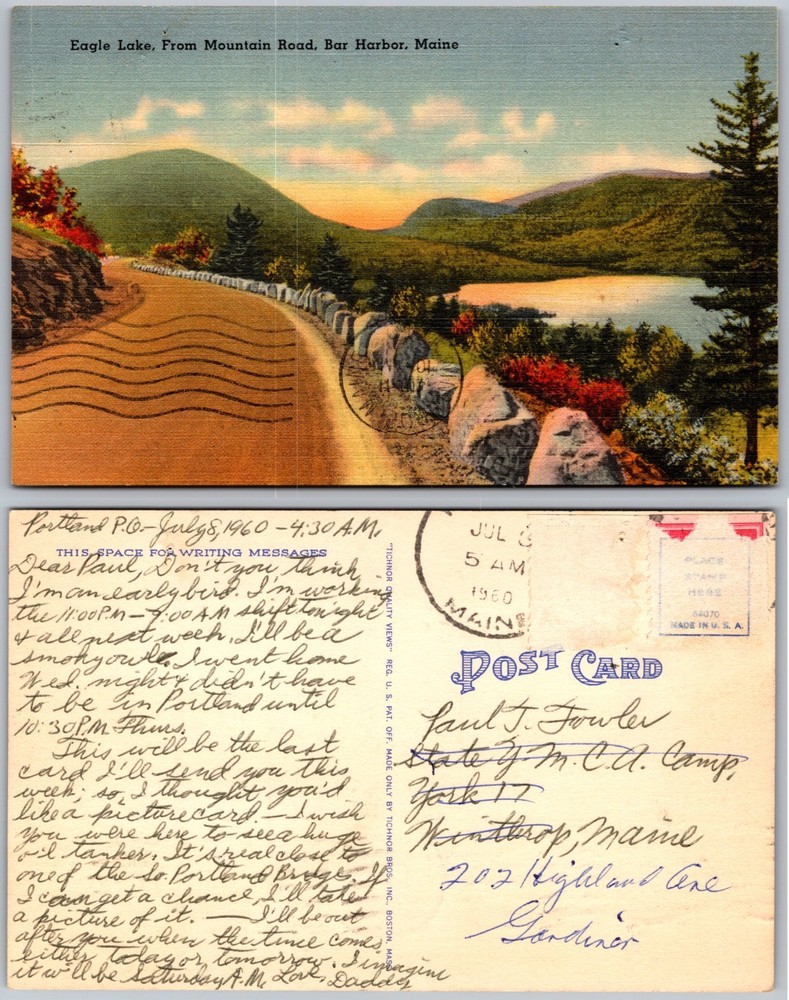 Eagle Lake, From Mountain Road, Bar Harbor, Maine
Portland P.O. - July 8, 1960 - 4:30 A.M.
THIS SPACE FOR WRITING MESSAGES
Dear Paul, Don't you think
I'm an early bird. I'm working
the 11:00 P.M - 7:00 A M shift tonight
& all next week. I'll be a
smoky owl. I went home
Wed. night & didn't have
to be in Portland until
10:30 P.M. Thurs.
This will be the last
card I'll send you this
week; so, I thought you'd
like a picture card. - I wish
you were here to see a huge
oil tanker. It's real close to
one of the So. Portland Bridge. If
I can get a chance, I'll take
a picture of it. - I'll be out
after you when the time comes
either today or tomorrow. I imagin
it w'll be Saturday A.M. Love, Daddy
"TICHNOR QUALITY VIEWS" REG. U. S. PAT. OFF. MADE ONLY BY TICHNOR BROS. INC., BOSTON, MASS.
JUL 8
5 AM
1960
MAINE
PLACE
STAMP
HERE
64070
MADE IN U. S. A.
POST CARD
Paul T. Fowler
State Y.M.C.A. Camp,
York 17
Winthrop, Maine
202 Highland Ave
Gardiner